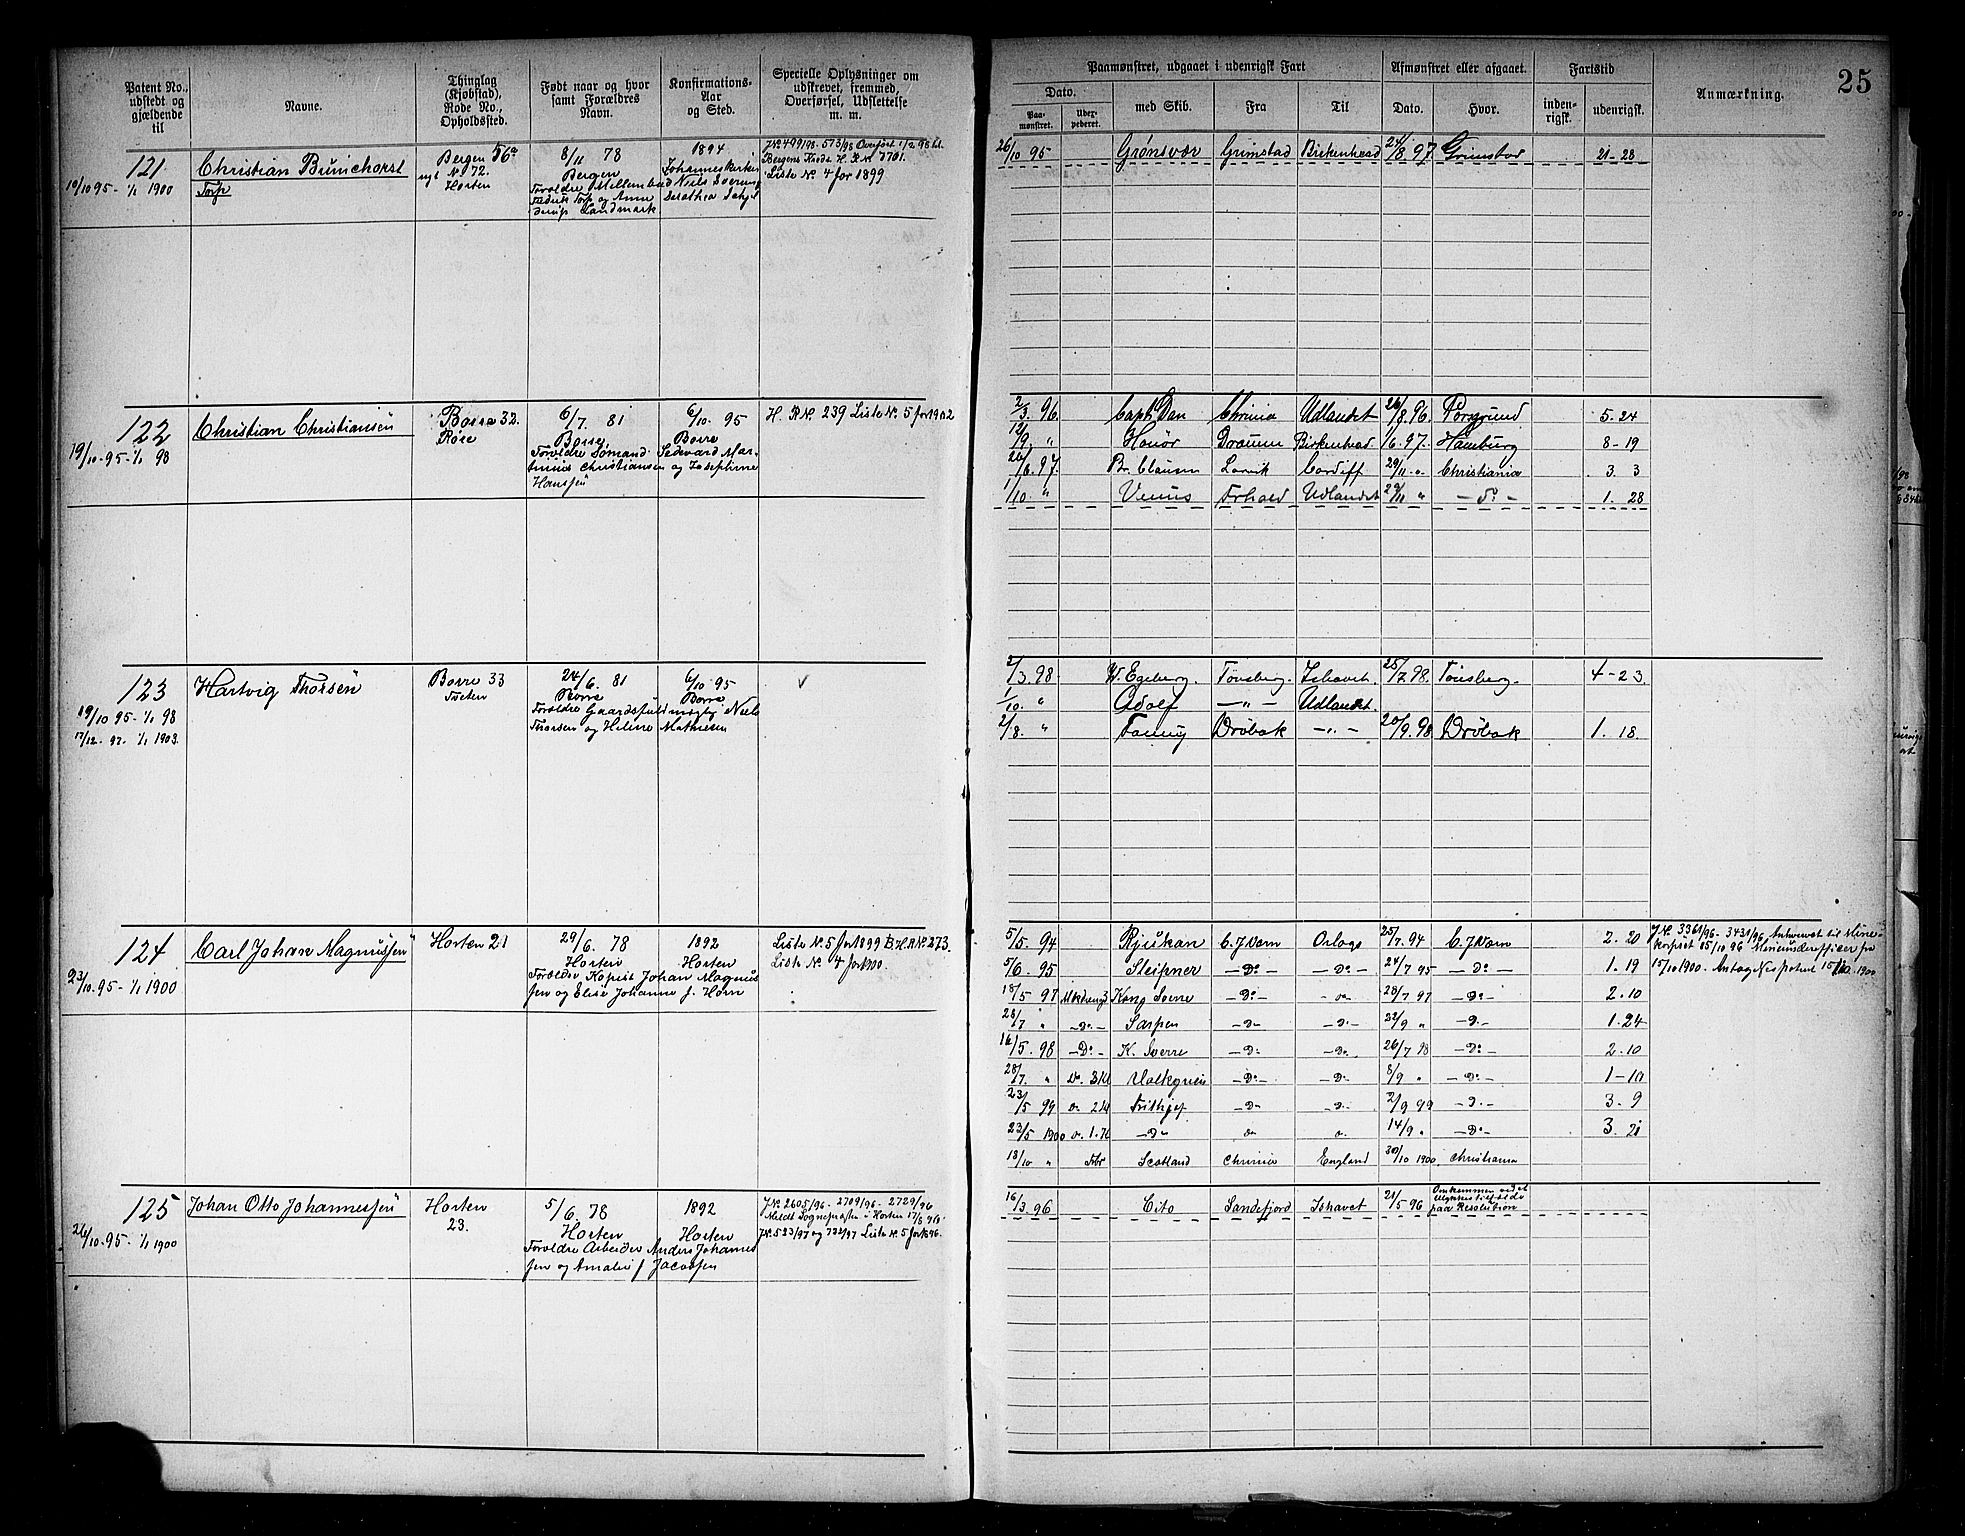 25
Patent No., udstedt og gjældende til
Navne.
Thinglag (Kjøbstad), Rode No., Opholdssted.
Født naar og hvor samt Forældres Navn.
Konfirmations-Aar og Sted.
Specielle Oplysninger om udskrevet, fremmed, Overførsel, Udslettelse m. m.
Paamønstret, udgaaet i udenrigsk Fart
Dato.
Paa-mønstret.
med Skib.
Fra
Til
Afmønstret eller afgaaet.
Dato.
Hvor.
Fartstid
inden-rigsk.
udenrigsk.
Anmærkning.
121
10/10 95 - 1/1 1900
Christian Brunchorst
Torp
Bergen 56a
nyt No 72.
Horten
8/11 78
Bergen
Forældre
Torp og Anna
Landmark
1894
Johanneskirken
J.No 499/98 - 573/98 Overført 1/2 98 til
Bergens Kreds H. R. No 7701.
Liste No. 4 for 1899
26/10 95 Grønsvær Grimstad Birkenhead 24/8. 97. Grimstad 21-28
122
19/10. 95 - 1/1 98
Christian Christiansen
Borre 32.
Røre
6/7. 81
Borre,
Forældre Sømand Sedevard Mar-
tinius Christiansen og Josephine
Hansen
6/10. 95
Borre
H. R No. 239 Liste No. 5 for 1902
2/3. 96. Capt. Dan Chrinia Udlandet 26/8. 96. Porsgrund 5-24
12/9. " Honør Drammen Birkenhead 1/6. 97. Hamburg 8-19
26/6. 97. Br. Clausen Larvik Cardiff 29/11. " Christiania 3. 3
1/10. " Venus Frhald Udlandet 29/11 " - Do. - 1. 28
123
19/10 95 - 1/1 98
17/12. 97. 1/1 1903.
Hartvig Thorsen
Borre 33
24/6. 81
Borre
Forældre Gaardsfuldmægtig Niels
Thorsen og Helene Mathisen
6/10 95
Borre
√
2/3. 98 W. Egeberg. Tønsberg. Ishavet. 25/7 98. Tønsberg. 4-23.
1/10. " Adolf - " - Udlandet.
2/8. " Fanny Drøbak - " - 20/9. 98 Drøbak 1. 18.
124
23/10. 95 - 1/1 1900
Carl Johan Magnussen
Horten 21
29/6. 78
Horten
Forældre Kopist Johan Magnus
sen og Elise Johanne f. Horn
1892
Horten
Liste No. 5 for 1899 B.H.R.No. 273.
Liste No. 4 for 1900.
5/5. 94 Rjukan C. J. Værn Orlogs 25/7. 94 C. J. Værn 2. 20
5/6. 95 Sleipner - Do - - Do - 24/7 95 - Do - 1. 19
18/5 97 Kong Sverre - Do - - Do 28/7 97 - Do - 2. 10
28/7 " - Do - Sarpen - Do - Do - 22/9 " - Do - 1. 24
16/5. 98 - Do - K. Sverre - Do - - Do. 26/7 98 - Do - 2. 10
28/7. " Do. 3 Kl Valkyrien - Do - - Do - 8/9 " - Do - 1-10
23/5 99 do 2 Kl Fridtjof - Do - - Do - 2/9 99 - Do - 3. 9
23/5 1900 do. 1. Kl - Do do do. 14/9 " - Do - 3. 21
13/10 " Scotland Chrinia England 30/10 1900. Christiania
J.No. 3361/96 - 3431/96 Antaget til Mine-
korpset 15/10 96
15/10 1900.
125
26/10. 95 - 1/1 1900
Johan Otto Johannessen
Horten
23.
5/6. 78
Horten
Forældre Arbeider Anders Johannes
sen og Amalie f. Jacobsen
1892
Horten
J.No. 2605/96 - 2709/96 - 2729/96
Meldt Sognepræsten i Horten 17/8 96.
J.No. 523/97 og 722/97 Liste No. 5 for 1896.
16/3 96 Cito Sandefjord Ishavet 21/5 96 Omkommen ved et
Ulykkestilfælde
paa Resolution